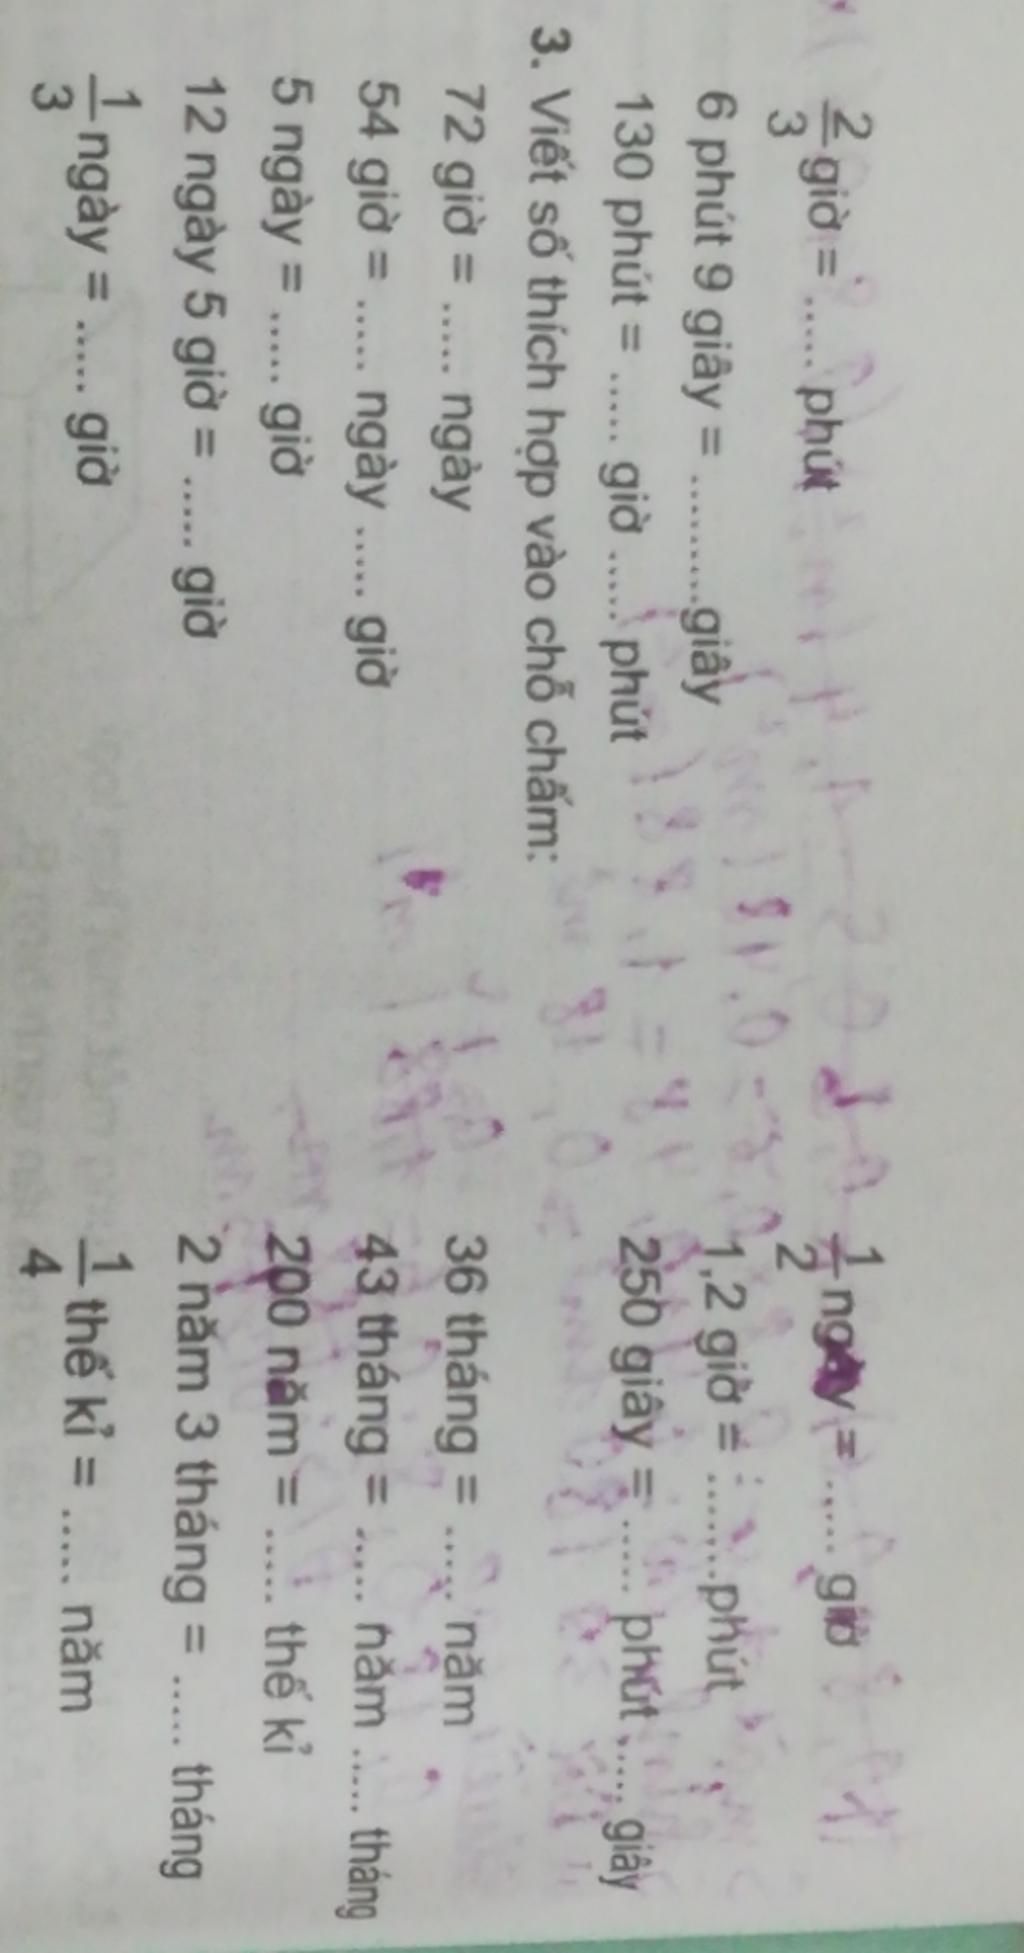 2/3 giờ = ..... phút
1/2 ngày = ..... giờ
6 phút 9 giây = .........giây
1,2 giờ = .......phút
130 phút = ..... giờ ..... phút
250 giây = ..... phút ..... giây
3. Viết số thích hợp vào chỗ chấm:
72 giờ = ..... ngày
36 tháng = ..... năm
54 giờ = ..... ngày ..... giờ
43 tháng = ..... năm ..... tháng
5 ngày = ..... giờ
200 năm = ..... thế kỉ
12 ngày 5 giờ = ..... giờ
2 năm 3 tháng = ..... tháng
1/3 ngày = ..... giờ
1/4 thế kỉ = ..... năm